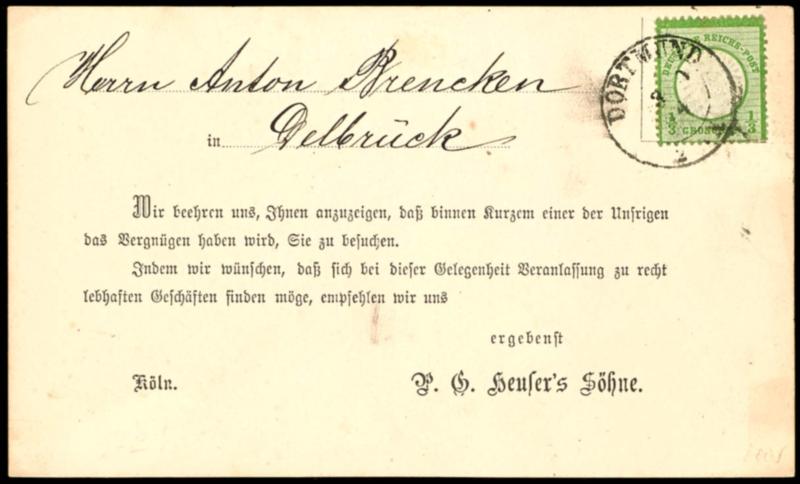 Herrn Anton Brencken
in Delbrück
DEUTSCHE REICHS-POST
1/3 GROSCHEN 1/3
DORTMUND
2
Wir beehren uns, Ihnen anzuzeigen, daß binnen Kurzem einer der Unsrigen
das Vergnügen haben wird, Sie zu besuchen.
Indem wir wünschen, daß sich bei dieser Gelegenheit Veranlassung zu recht
lebhaften Geschäften finden möge, empfehlen wir uns
ergebenst
Köln. P. G. Heuser's Söhne.